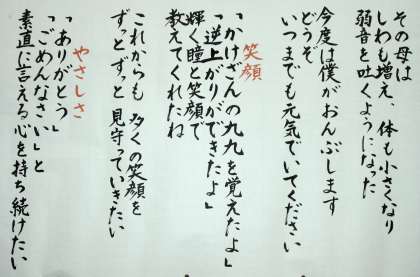 その母は
しわも増え、体も小さくなり
弱音を吐くようになった
今度は僕がおんぶします
どうぞ
いつまでも元気でいてください
笑顔
「かけざんの九九を覚えたよ」
「逆上がりができたよ」
輝く瞳と笑顔で
教えてくれたね
これからも 多くの笑顔を
ずっとずっと 見守っていきたい
やさしさ
「ありがとう」
「ごめんなさい」と
素直に言える心を持ち続けたい